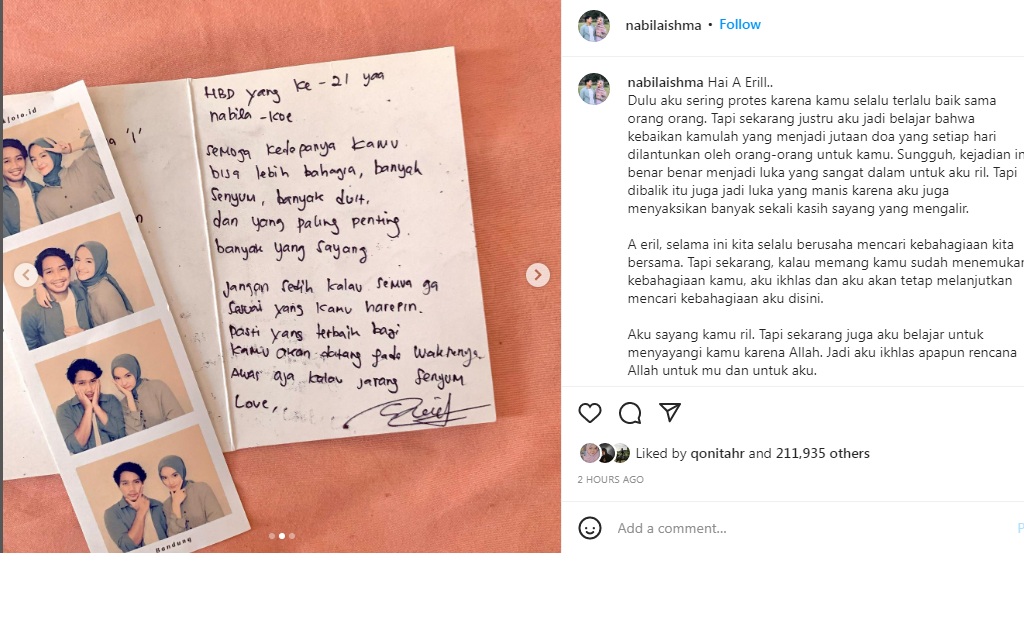 kfoto.id
a '1'
n
Bandung
HBD yang ke-21 yaa
nabila-koe
Semoga kedepanya kamu
bisa lebih bahagia, banyak
Senyum, banyak duit,
dan yang paling penting
banyak yang sayang
Jangan sedih kalau semua ga
sesuai yang kamu harepin.
Pasti yang terbaik bagi
kamu akan datang pada waktunya.
Awas aja kalau jarang senyum
Love,
nabilaishma • Follow
nabilaishma Hai A Erill..
Dulu aku sering protes karena kamu selalu terlalu baik sama
orang orang. Tapi sekarang justru aku jadi belajar bahwa
kebaikan kamulah yang menjadi jutaan doa yang setiap hari
dilantunkan oleh orang-orang untuk kamu. Sungguh, kejadian in
benar benar menjadi luka yang sangat dalam untuk aku ril. Tapi
dibalik itu juga jadi luka yang manis karena aku juga
menyaksikan banyak sekali kasih sayang yang mengalir.
A eril, selama ini kita selalu berusaha mencari kebahagiaan kita
bersama. Tapi sekarang, kalau memang kamu sudah menemukan
kebahagiaan kamu, aku ikhlas dan aku akan tetap melanjutkan
mencari kebahagiaan aku disini.
Aku sayang kamu ril. Tapi sekarang juga aku belajar untuk
menyayangi kamu karena Allah. Jadi aku ikhlas apapun rencana
Allah untuk mu dan untuk aku.
Liked by qonitahr and 211,935 others
2 HOURS AGO
Add a comment...
P